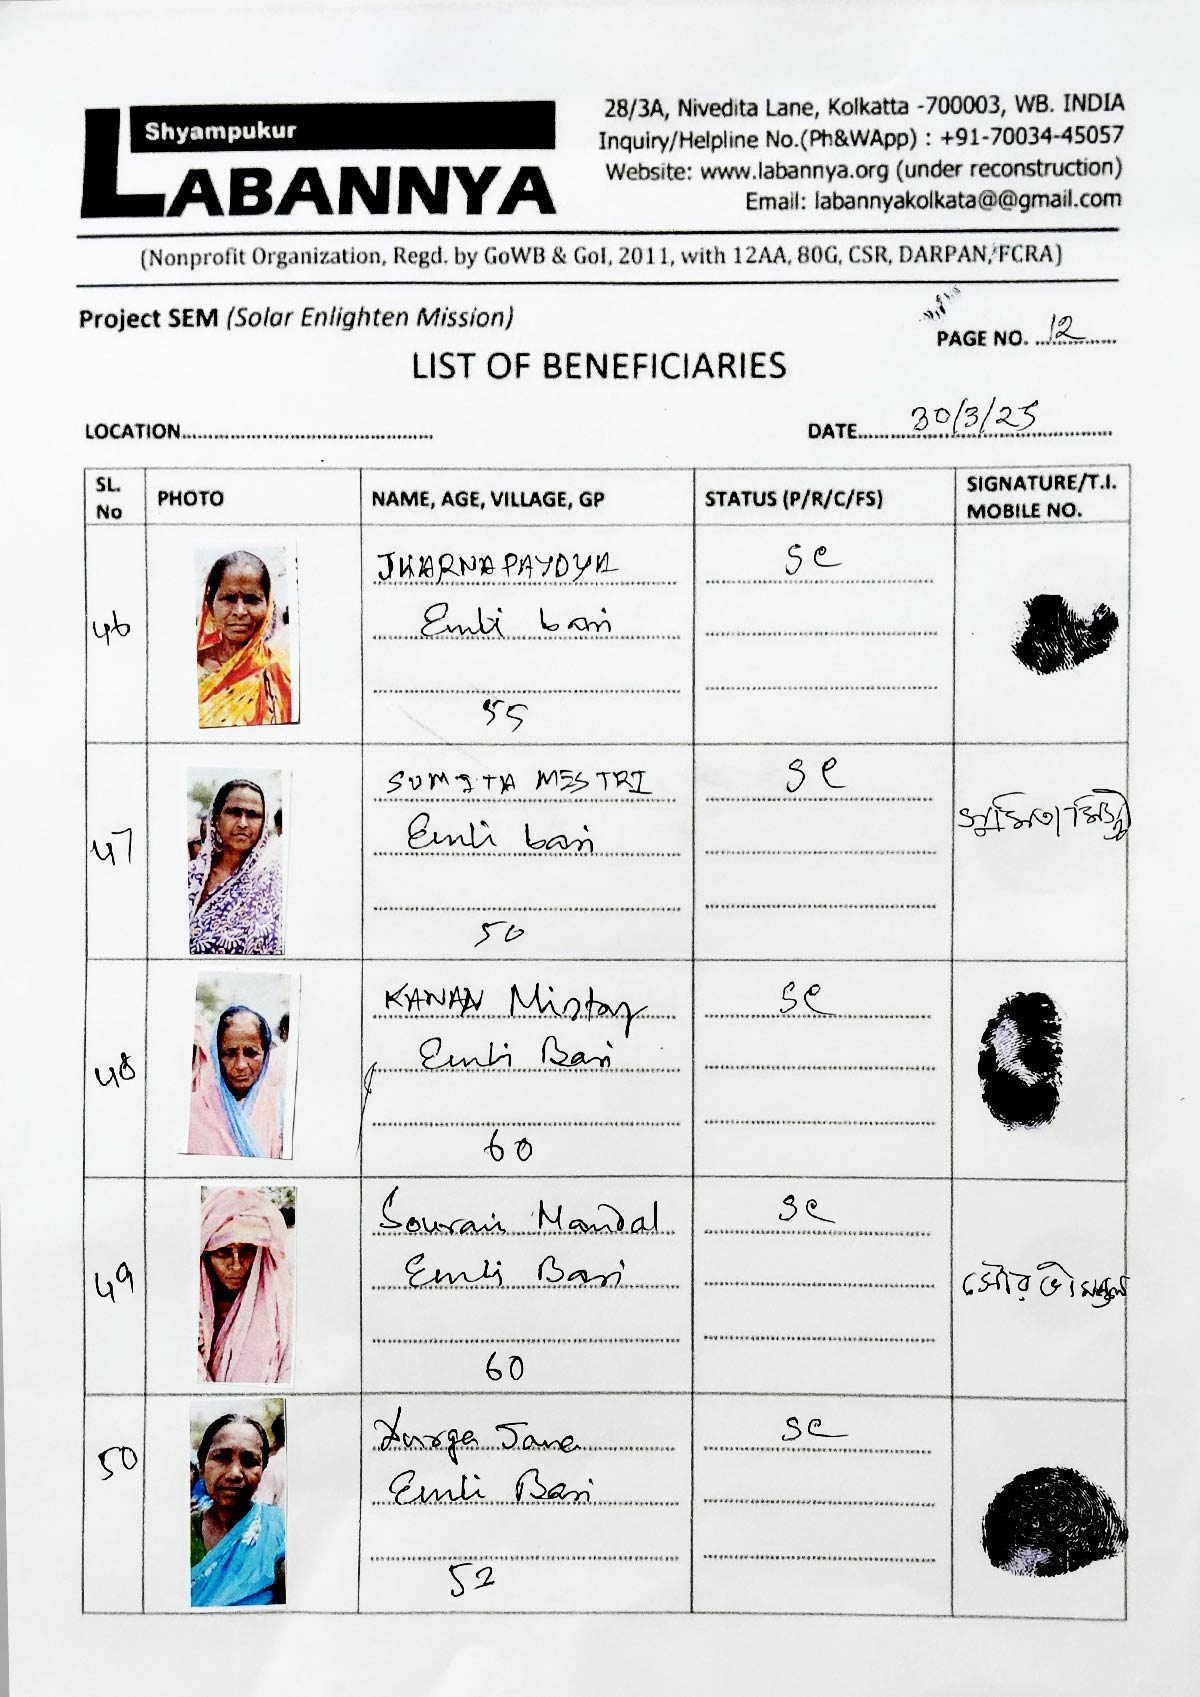 Shyampukur
LABANNYA
28/3A, Nivedita Lane, Kolkatta -700003, WB. INDIA
Inquiry/Helpline No.(Ph&WApp) : +91-70034-45057
Website: www.labannya.org (under reconstruction)
Email: labannyakolkata@@gmail.com
(Nonprofit Organization, Regd. by GoWB & GoI, 2011, with 12AA, 80G, CSR, DARPAN, FCRA)
Project SEM (Solar Enlighten Mission)
PAGE NO. 12
LIST OF BENEFICIARIES
LOCATION
DATE 30/3/25
SL. No PHOTO NAME, AGE, VILLAGE, GP STATUS (P/R/C/FS) SIGNATURE/T.I. MOBILE NO.
46 JHARNA PAYOYA SC
Emli bari
55
47 SUMITA MESTRI SC
Emli bari
সুমিতা মিস্ত্রী
50
48 KANAN Mistry SC
Emli Bari
60
49 Sourav Mandal SC
Emli Bari
সৌরভী মণ্ডল
60
50 Durga Jana SC
Emli Bari
52